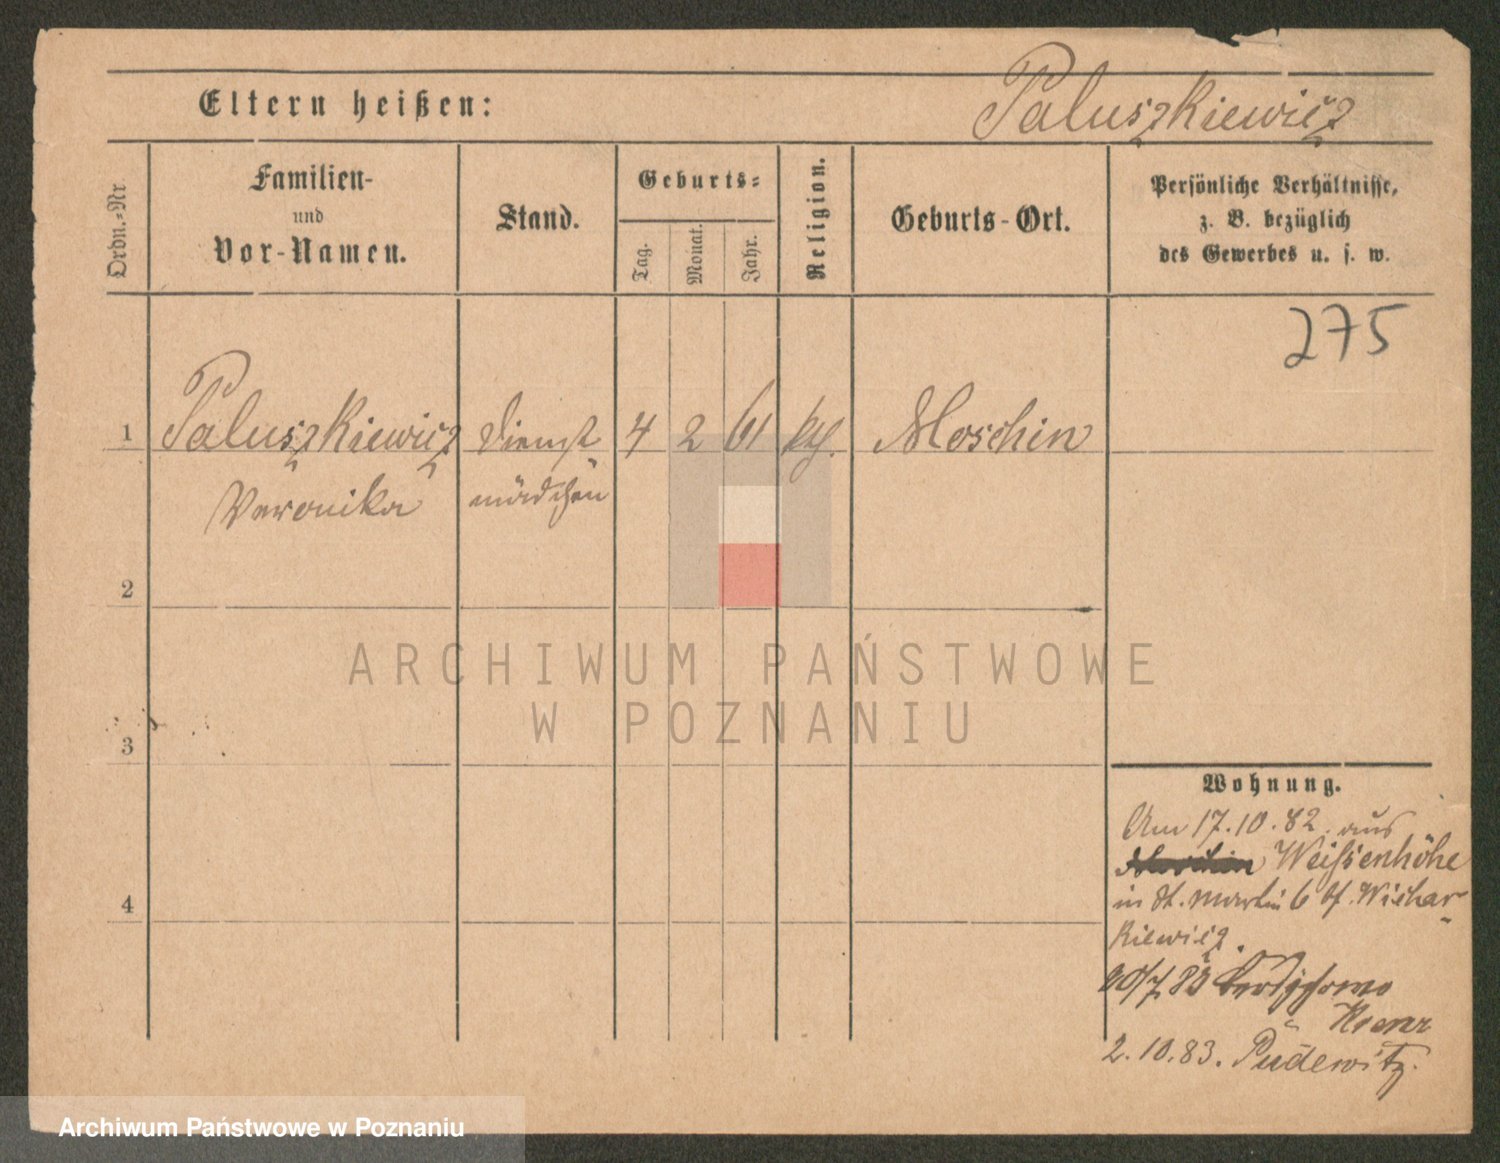 Eltern heißen: Paluszkiewicz
Ordn.-Nr
Familien-
und
Vor-Namen.
Stand.
Geburts-
Tag.
Monat.
Jahr.
Religion.
Geburts-Ort.
Persönliche Verhältnisse,
z. B. bezüglich
des Gewerbes u. s. w.
275
1 Paluszkiewicz Dienst 4 2 61 Moschin
Veronika mädchen
2
ARCHIWUM PAŃSTWOWE
W POZNANIU
3
4
Wohnung.
Am 17.10.82. aus
Moschin Weißenhöhe
in St. Martin 6 bf. Wichar-
kiewicz.
20/7 83
2.10.83. Pudewitz.
Archiwum Państwowe w Poznaniu